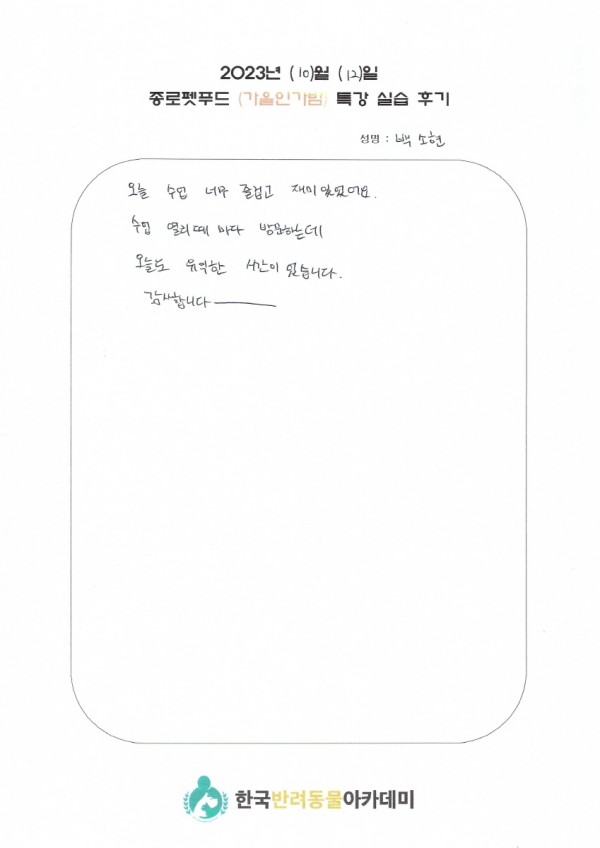 2023년 (10)월 (12)일
종로펫푸드 (가을인가범) 특강 실습 후기
성명 : 백소현
오늘 수업 너무 즐겁고 재미있었어요.
수업 열리때 마다 방문하는데
오늘도 유익한 시간이었습니다.
감사합니다
한국반려동물아카데미